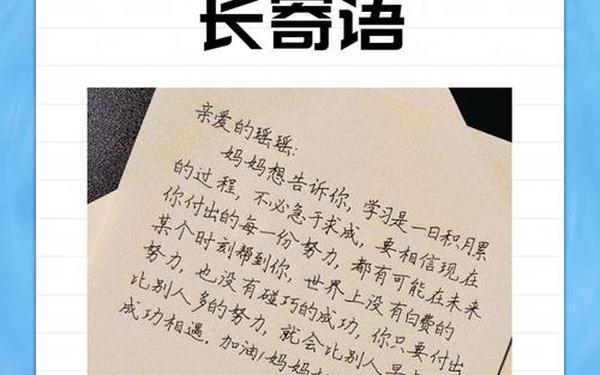 长寄语
亲爱的瑶瑶:
妈妈想告诉你,学习是一日积月累
的过程,不必急于求成,要相信现在
你付出的每一份努力,都有可能在未来
某个时刻帮到你,世界上没有白费的
努力,也没有碰巧的成功,你只要付出
比别人多的努力,就会比别人早
成功相遇.加油!妈妈